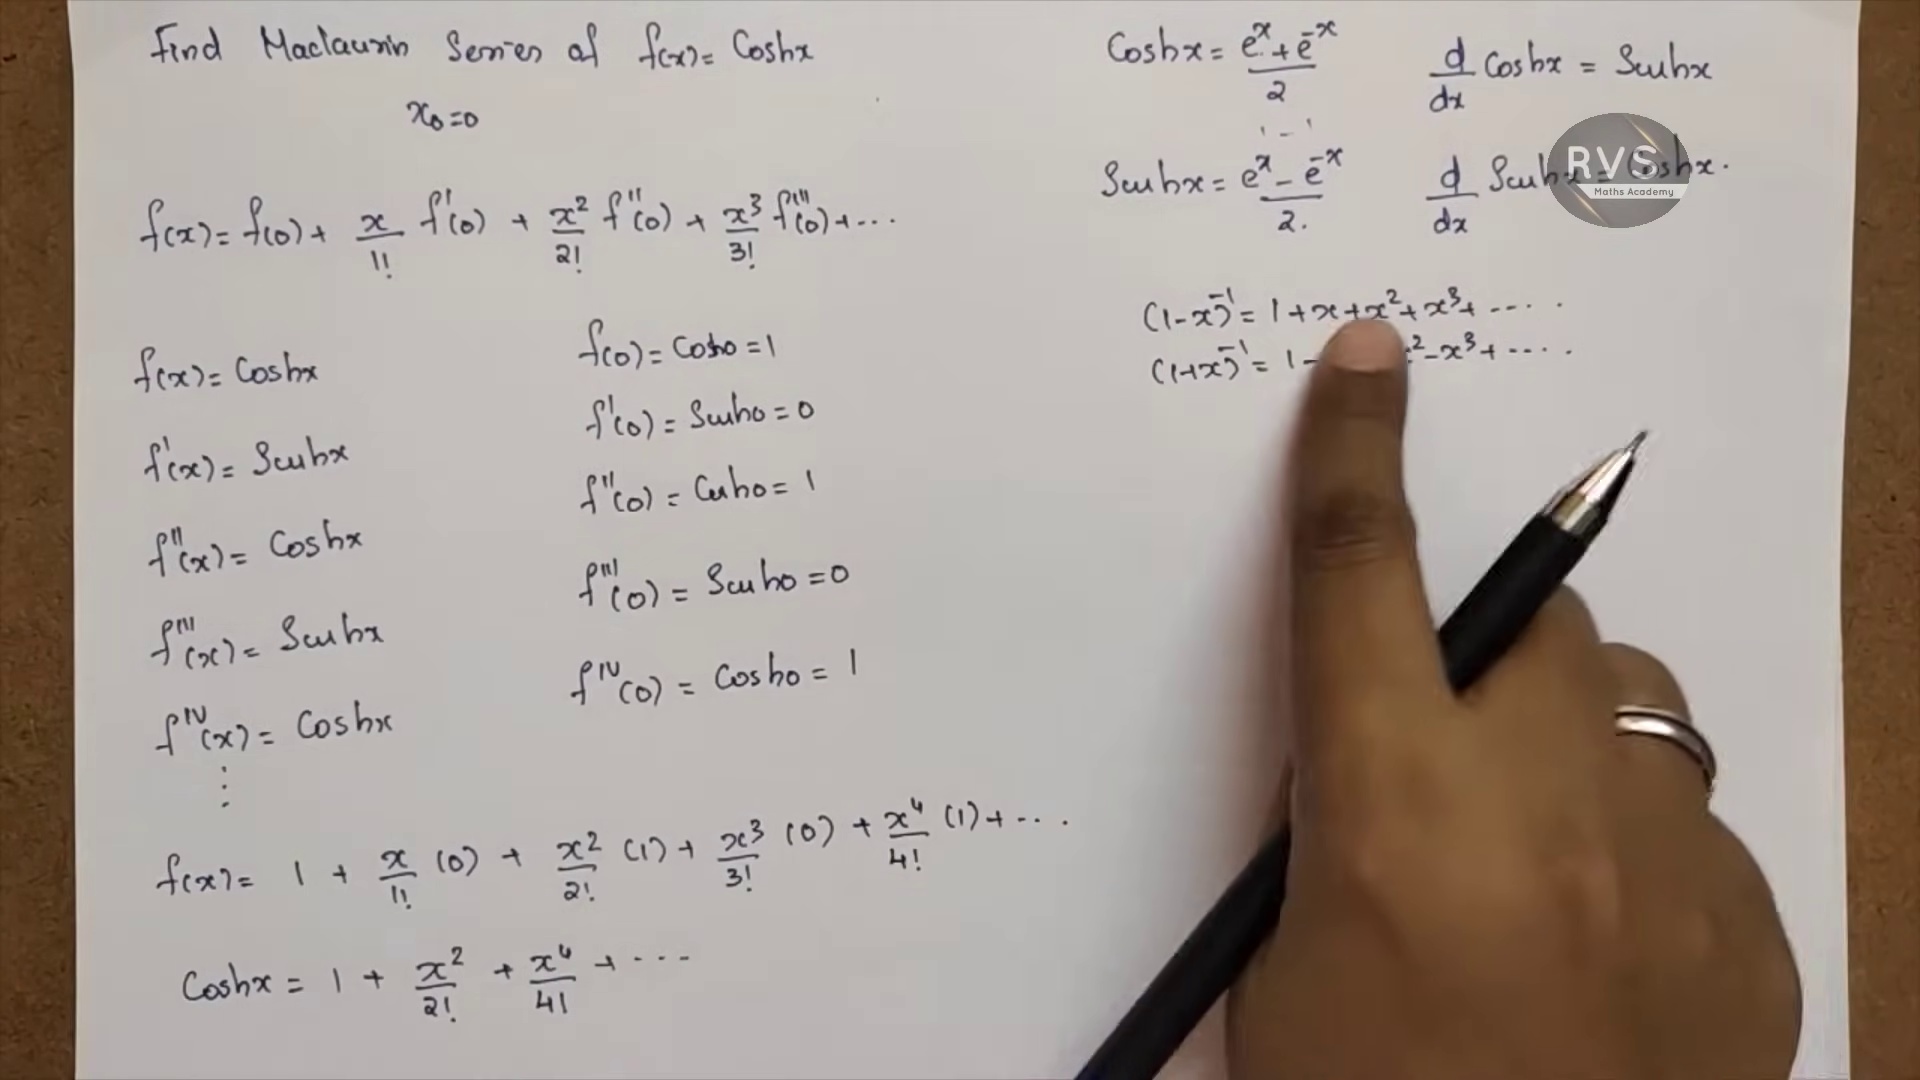 Find Maclaurin Series of f(x) = Coshx
x₀=0
f(x) = f(0) + x/1! f'(0) + x²/2! f''(0) + x³/3! f'''(0) + ...
f(x) = Coshx
f'(x) = Sinhx
f''(x) = Coshx
f'''(x) = Sinhx
f^IV(x) = Coshx
⋮
f(0) = Cosh0 = 1
f'(0) = Sinh0 = 0
f''(0) = Cosh0 = 1
f'''(0) = Sinh0 = 0
f^IV(0) = Cosh0 = 1
f(x) = 1 + x/1! (0) + x²/2! (1) + x³/3! (0) + x⁴/4! (1) + ...
Coshx = 1 + x²/2! + x⁴/4! + ...
Coshx = (e^x + e^-x)/2
d/dx Coshx = Sinhx
1 - 1
Sinhx = (e^x - e^-x)/2.
d/dx Sinhx = Coshx.
RVS
Maths Academy
(1-x)^-1 = 1 + x + x² + x³ + ....
(1+x)^-1 = 1 - ² - x³ + ....